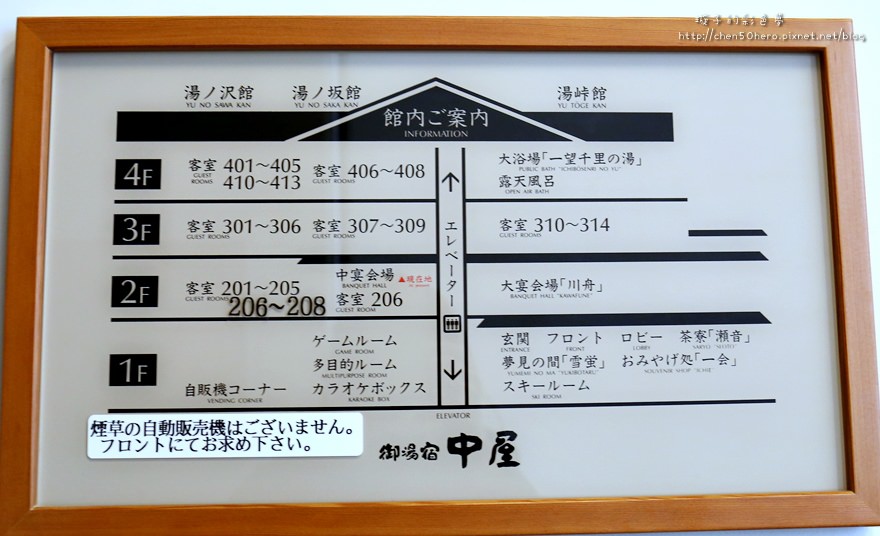 璇子的彩色夢
http://chen50hero.pixnet.net/blog
湯ノ沢館 湯ノ坂館 湯峠館
YU NO SAWA KAN YU NO SAKA KAN YU TŌGE KAN
館内ご案内
INFORMATION
4F
客室 401〜405 客室 406〜408
GUEST ROOMS GUEST ROOMS
410〜413
大浴場「一望千里の湯」
PUBLIC BATH "ICHIBOSENRI NO YU"
露天風呂
OPEN AIR BATH
3F
客室 301〜306 客室 307〜309 客室 310〜314
GUEST ROOMS GUEST ROOMS GUEST ROOMS
2F
客室 201〜205
GUEST ROOMS
206〜208
中宴会場 ▲現在地
BANQUET HALL
客室 206
GUEST ROOM
大宴会場「川舟」
BANQUET HALL "KAWAFUNE"
エレベーター
1F
ゲームルーム
GAME ROOM
多目的ルーム
MULTIPURPOSE ROOM
自販機コーナー カラオケボックス
VENDING CORNER KARAOKE BOX
玄関 フロント ロビー 茶寮「瀬音」
ENTRANCE FRONT LOBBY SARYO "SEOTO"
夢見の間「雪蛍」 おみやげ処「一会」
YUMEMI NO MA "YUKIBOTARU" SOUVENIR SHOP "ICHIE"
スキールーム
SKI ROOM
ELEVATOR
煙草の自動販売機はございません。
フロントにてお求め下さい。
御湯宿 中屋